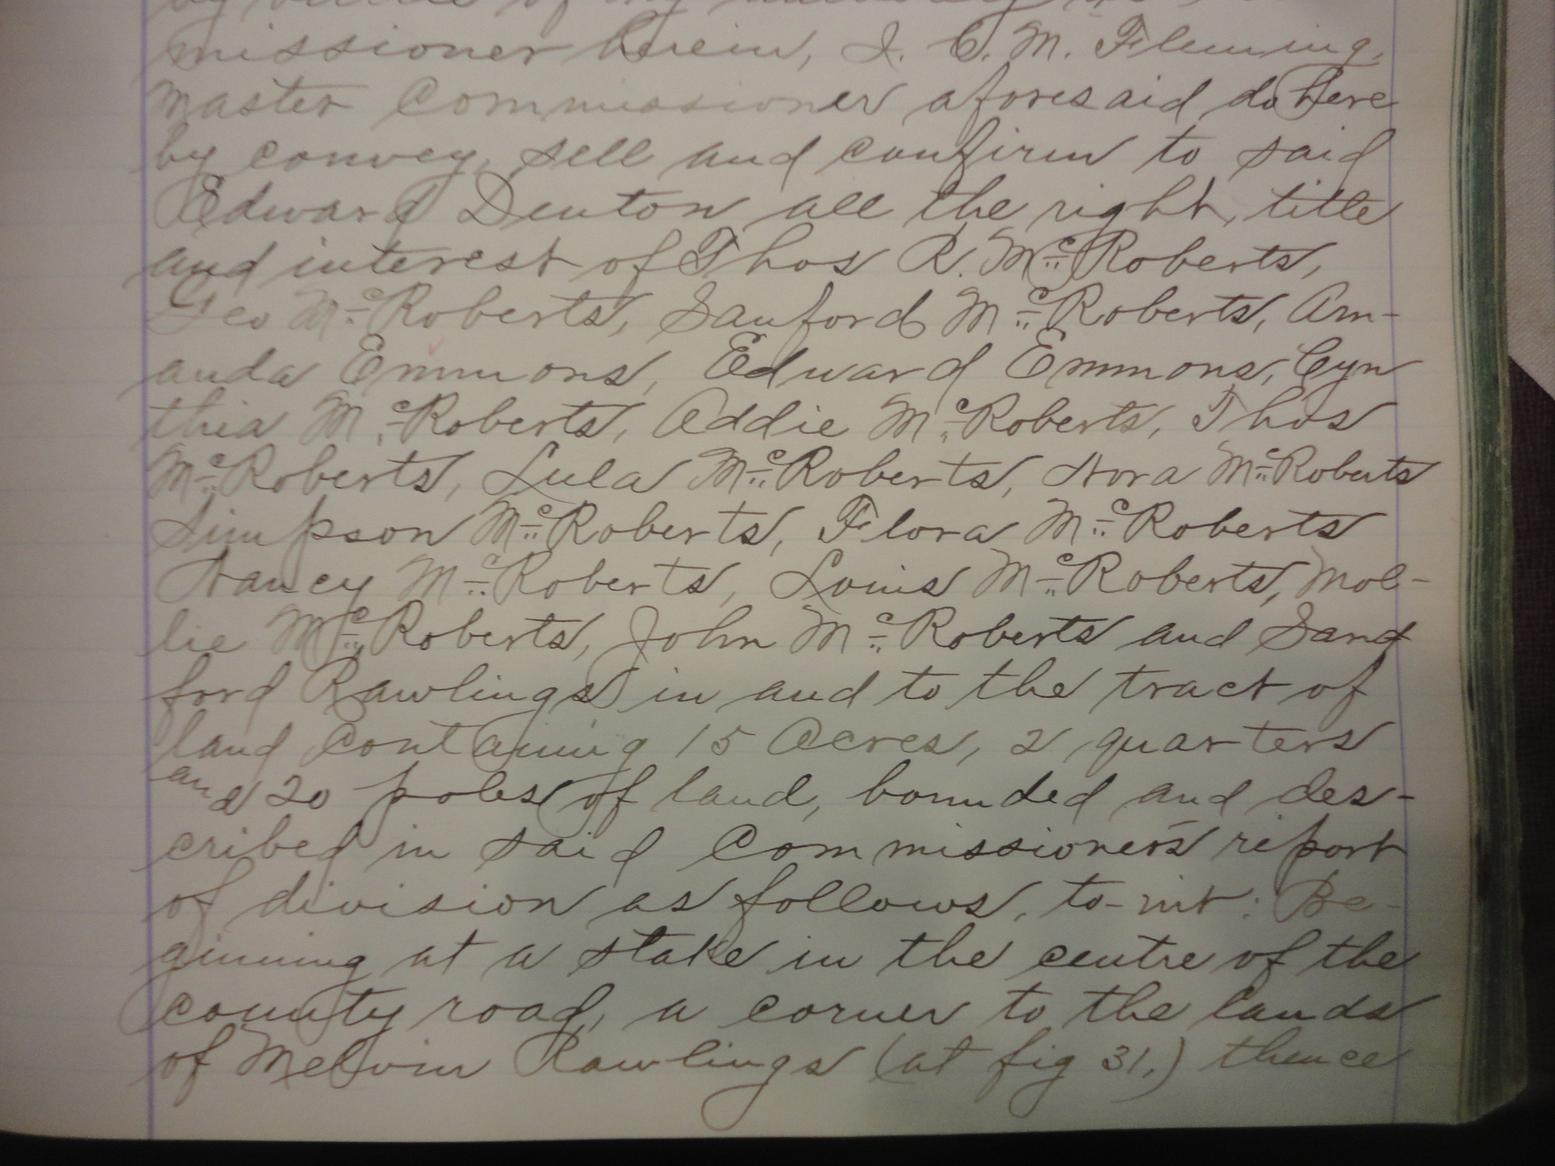 by virtue of my authority as
missioner herein, I. C. M. Fleming,
master Commissioner aforesaid do here
by convey, sell and confirm to said
Edward Denton all the right, title
and interest of Thos R. McRoberts,
Geo McRoberts, Sanford McRoberts, Am-
anda Emmons, Edward Emmons, Cyn
thia McRoberts, Addie McRoberts, Thos
McRoberts, Lula McRoberts, Nora McRoberts
Simpson McRoberts, Flora McRoberts
Nancy McRoberts, Louis McRoberts, Mol-
lie McRoberts, John McRoberts and Sand
ford Rawlings in and to the tract of
land containing 15 Acres, 2 quarters
and 20 poles of land, bounded and des-
cribed in said Commissioner's report
of division as follows, to-wit: Be-
ginning at a stake in the centre of the
county road, a corner to the lands
of Melvin Rawlings (at fig 31.) thence